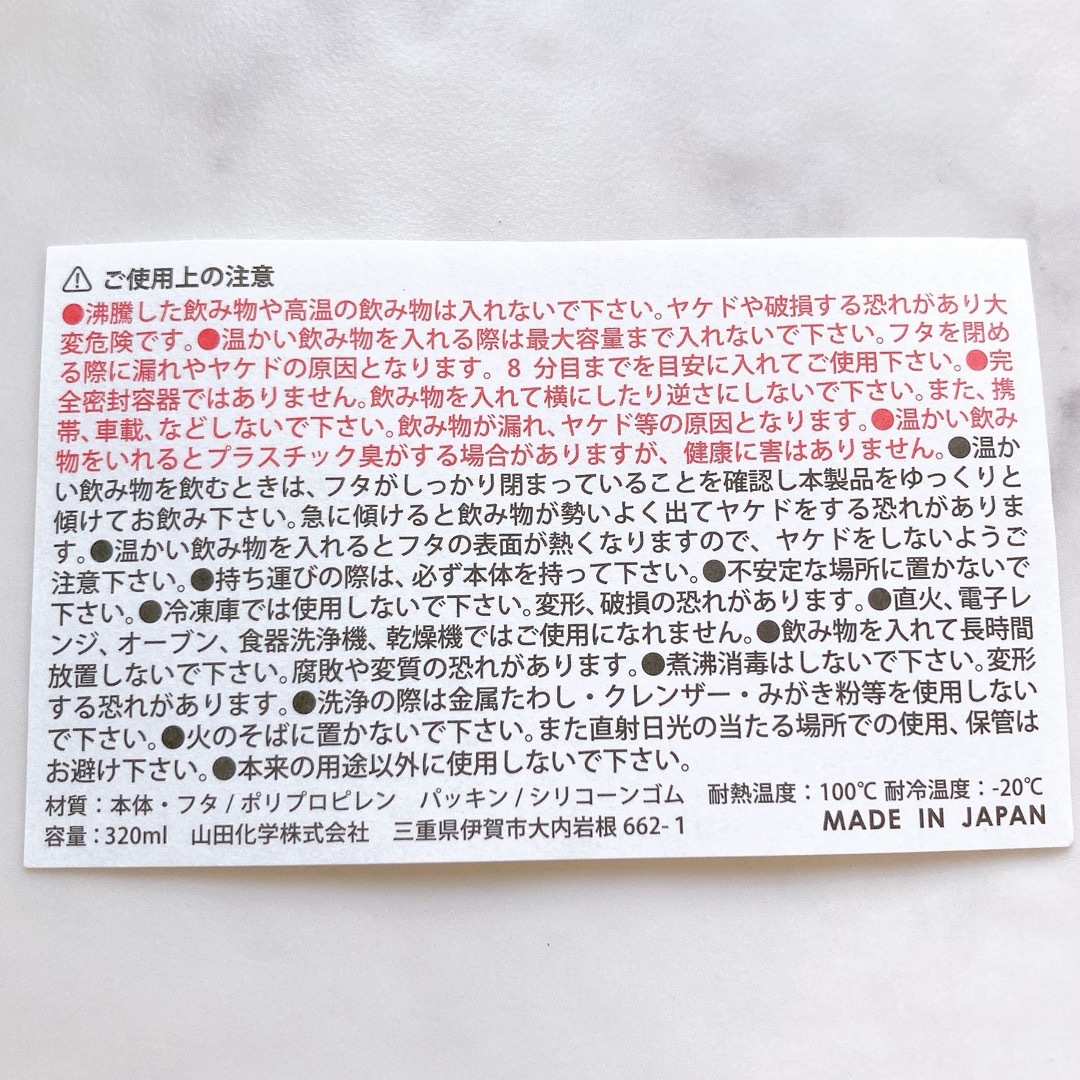 ⚠ ご使用上の注意
●沸騰した飲み物や高温の飲み物は入れないで下さい。ヤケドや破損する恐れがあり大
変危険です。●温かい飲み物を入れる際は最大容量まで入れないで下さい。フタを閉め
る際に漏れやヤケドの原因となります。8 分目までを目安に入れてご使用下さい。●完
全密封容器ではありません。飲み物を入れて横にしたり逆さにしないで下さい。また、携
帯、車載、などしないで下さい。飲み物が漏れ、ヤケド等の原因となります。●温かい飲み
物をいれるとプラスチック臭がする場合がありますが、健康に害はありません。●温か
い飲み物を飲むときは、フタがしっかり閉まっていることを確認し本製品をゆっくりと
傾けてお飲み下さい。急に傾けると飲み物が勢いよく出てヤケドをする恐れがありま
す。●温かい飲み物を入れるとフタの表面が熱くなりますので、ヤケドをしないようご
注意下さい。●持ち運びの際は、必ず本体を持って下さい。●不安定な場所に置かないで
下さい。●冷凍庫では使用しないで下さい。変形、破損の恐れがあります。●直火、電子レ
ンジ、オーブン、食器洗浄機、乾燥機ではご使用になれません。●飲み物を入れて長時間
放置しないで下さい。腐敗や変質の恐れがあります。●煮沸消毒はしないで下さい。変形
する恐れがあります。●洗浄の際は金属たわし・クレンザー・みがき粉等を使用しない
で下さい。●火のそばに置かないで下さい。また直射日光の当たる場所での使用、保管は
お避け下さい。●本来の用途以外に使用しないで下さい。
材質：本体・フタ / ポリプロピレン　パッキン / シリコーンゴム　耐熱温度：100℃ 耐冷温度：-20℃
容量：320ml　山田化学株式会社　三重県伊賀市大内岩根 662-1　MADE IN JAPAN